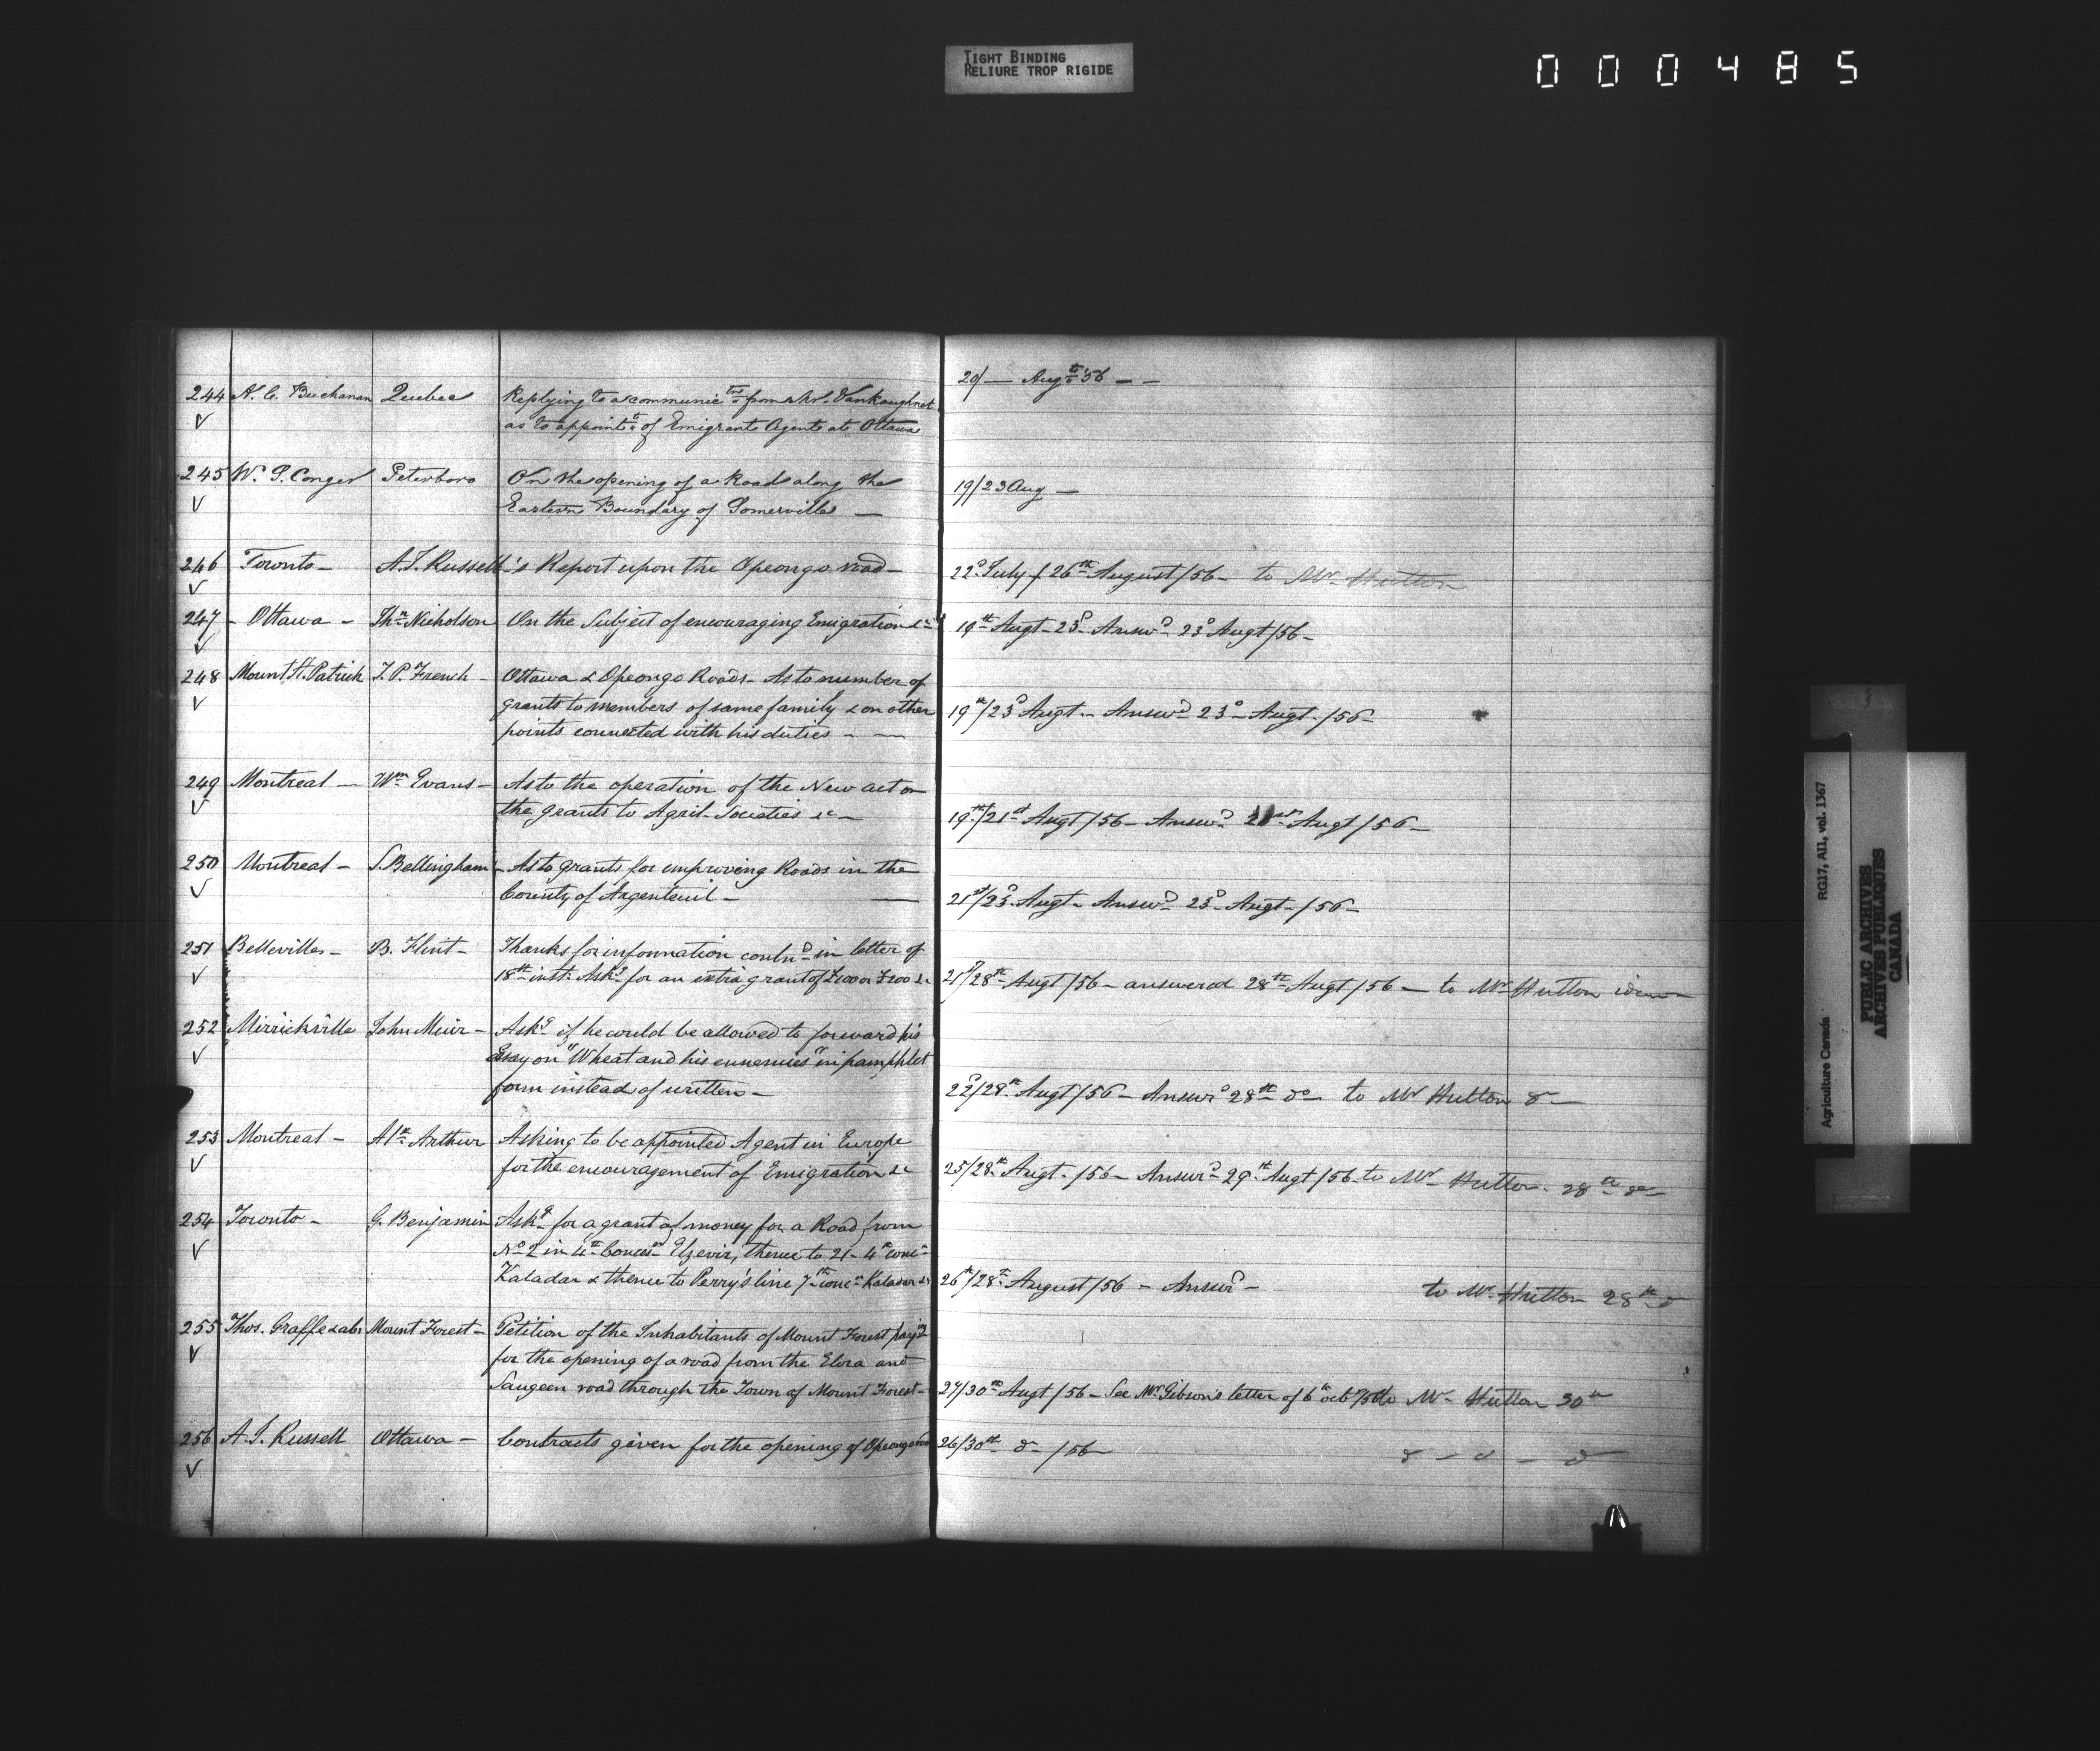 TIGHT BINDING
RELIURE TROP RIGIDE
000485
244 A. C. Buchanan Quebec Replying to a communic tns from Mr. Vankoughnet 20/ — Augt '56 — —
√ as to appointt of Emigrant Agent at Ottawa
245 W. S. Conger Peterboro On the opening of a Road along the 19/23 Aug —
√ Eastern Boundary of Somerville —
246 Toronto — A. J. Russell's Report upon the Opeongo road — 22d July / 26th August /56 — to Mr Hutton
√
247 — Ottawa — Ths Nicholson On the Subject of encouraging Emigration &c 19th Augt - 23d Answd 23d Augt /56 —
√
248 Mount St. Patrick T. P. French — Ottawa & Opeongo Roads — As to number of
√ grants to members of same family & on other 19th/23d Augt — Answd 23d Augt. /56 —
points connected with his duties — —
249 Montreal — Wm Evans — As to the operation of the New act on
√ the grants to Agril. Societies &c — 19th/21st Augt /56 — Answd 21st Augt /56 —
250 Montreal — S. Bellingham — As to grants for improving Roads in the
√ County of Argenteuil — — 21st/23d Augt — Answd 23d Augt — /56 —
251 Belleville — B. Flint — Thanks for information contnd in letter of
√ 18th inst. Askg for an extra grant of £100 or £200 &c 21st/28th Augt /56 — answered 28th Augt /56 — to Mr Hutton idem —
252 Mirrickville John Muir — Askg if he could be allowed to forward his
√ Essay on "Wheat and his ennemies" in pamphlet
form instead of written — 22d/28th Augt /56 — Answd 28th do — to Mr Hutton do —
253 Montreal — Alx Arthur Asking to be appointed Agent in Europe
√ for the encouragement of Emigration &c 25/28th Augt. /56 — Answd 29th Augt /56 to Mr Hutton. 28th do —
254 Toronto — G. Benjamin Askg for a grant of money for a Road from
√ No 2 in 4th Concesn Elzevir, thence to 21 — 4th conc
Kaladar & thence to Perry's line 7th conc Kaladar &c 26th/28th August /56 — Answd — to Mr Hutton 28th do
255 Thos. Graffe & abr Mount Forest — Petition of the Inhabitants of Mount Forest prayg
√ for the opening of a road from the Elora and
Saugeen road through the Town of Mount Forest — 27/30th Augt /56 — See Mr Gibson's letter of 6th oct /56 to Mr Hutton 30th
256 A. J. Russell Ottawa — Contracts given for the opening of Opeongo road 26/30th do /56 — do — do — do
√
RG17, AII, vol. 1367
Agriculture Canada
PUBLIC ARCHIVES
ARCHIVES PUBLIQUES
CANADA